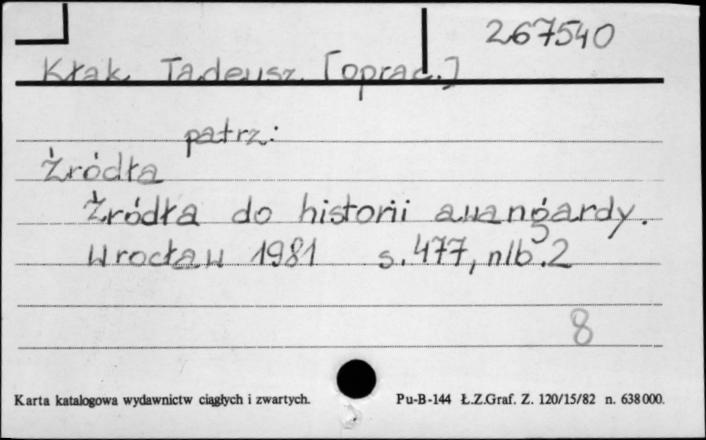 267540
Kłak, Tadeusz [oprac.]
patrz:
Źródła
Źródła do historii awangardy.
Wrocław 1981 s. 477, nlb. 2
8
Karta katalogowa wydawnictw ciągłych i zwartych. Pu-B-144 Ł.Z.Graf. Z. 120/15/82 n. 638 000.